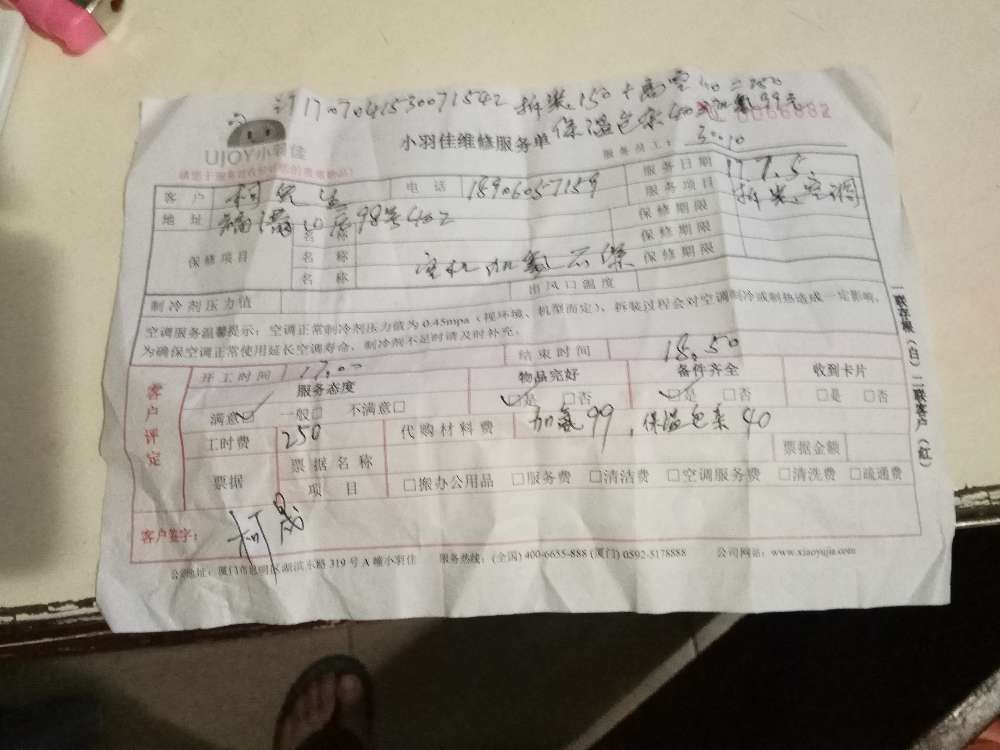 1707041530071542 拆装150+高空
保温包扎40 加氟99
UJOY小羽佳
小羽佳维修服务单
服务员工：
客户 柯先生 电话 18906057159 服务日期 17.7.5
地址 98号402 服务项目 拆装空调
保修项目 名称 保修期限
名称 保修期限
名称 保修期限
制冷剂压力值 出风口温度
空调服务温馨提示：空调正常制冷剂压力值为0.45mpa（视环境、机型而定），拆装过程会对空调制冷或制热造成一定影响，
为确保空调正常使用延长空调寿命，制冷剂不足时请及时补充。
开工时间 17.00 结束时间 18.50
客户评定
服务态度 物品完好 备件齐全 收到卡片
满意□ 一般□ 不满意□ □是 □否 □是 □否 □是 □否
工时费 250 代购材料费 加氟99，保温包扎40
票据 票据名称 票据金额
项目 □搬办公用品 □服务费 □清洁费 □空调服务费 □清洗费 □疏通费
客户签字： 柯晟
公司地址：厦门市思明区湖滨东路319号A幢小羽佳 服务热线：(全国) 400-6655-888 (厦门) 0592-5178888 公司网站：www.xiaoyujia.com
一联存根（白）二联客户（红）